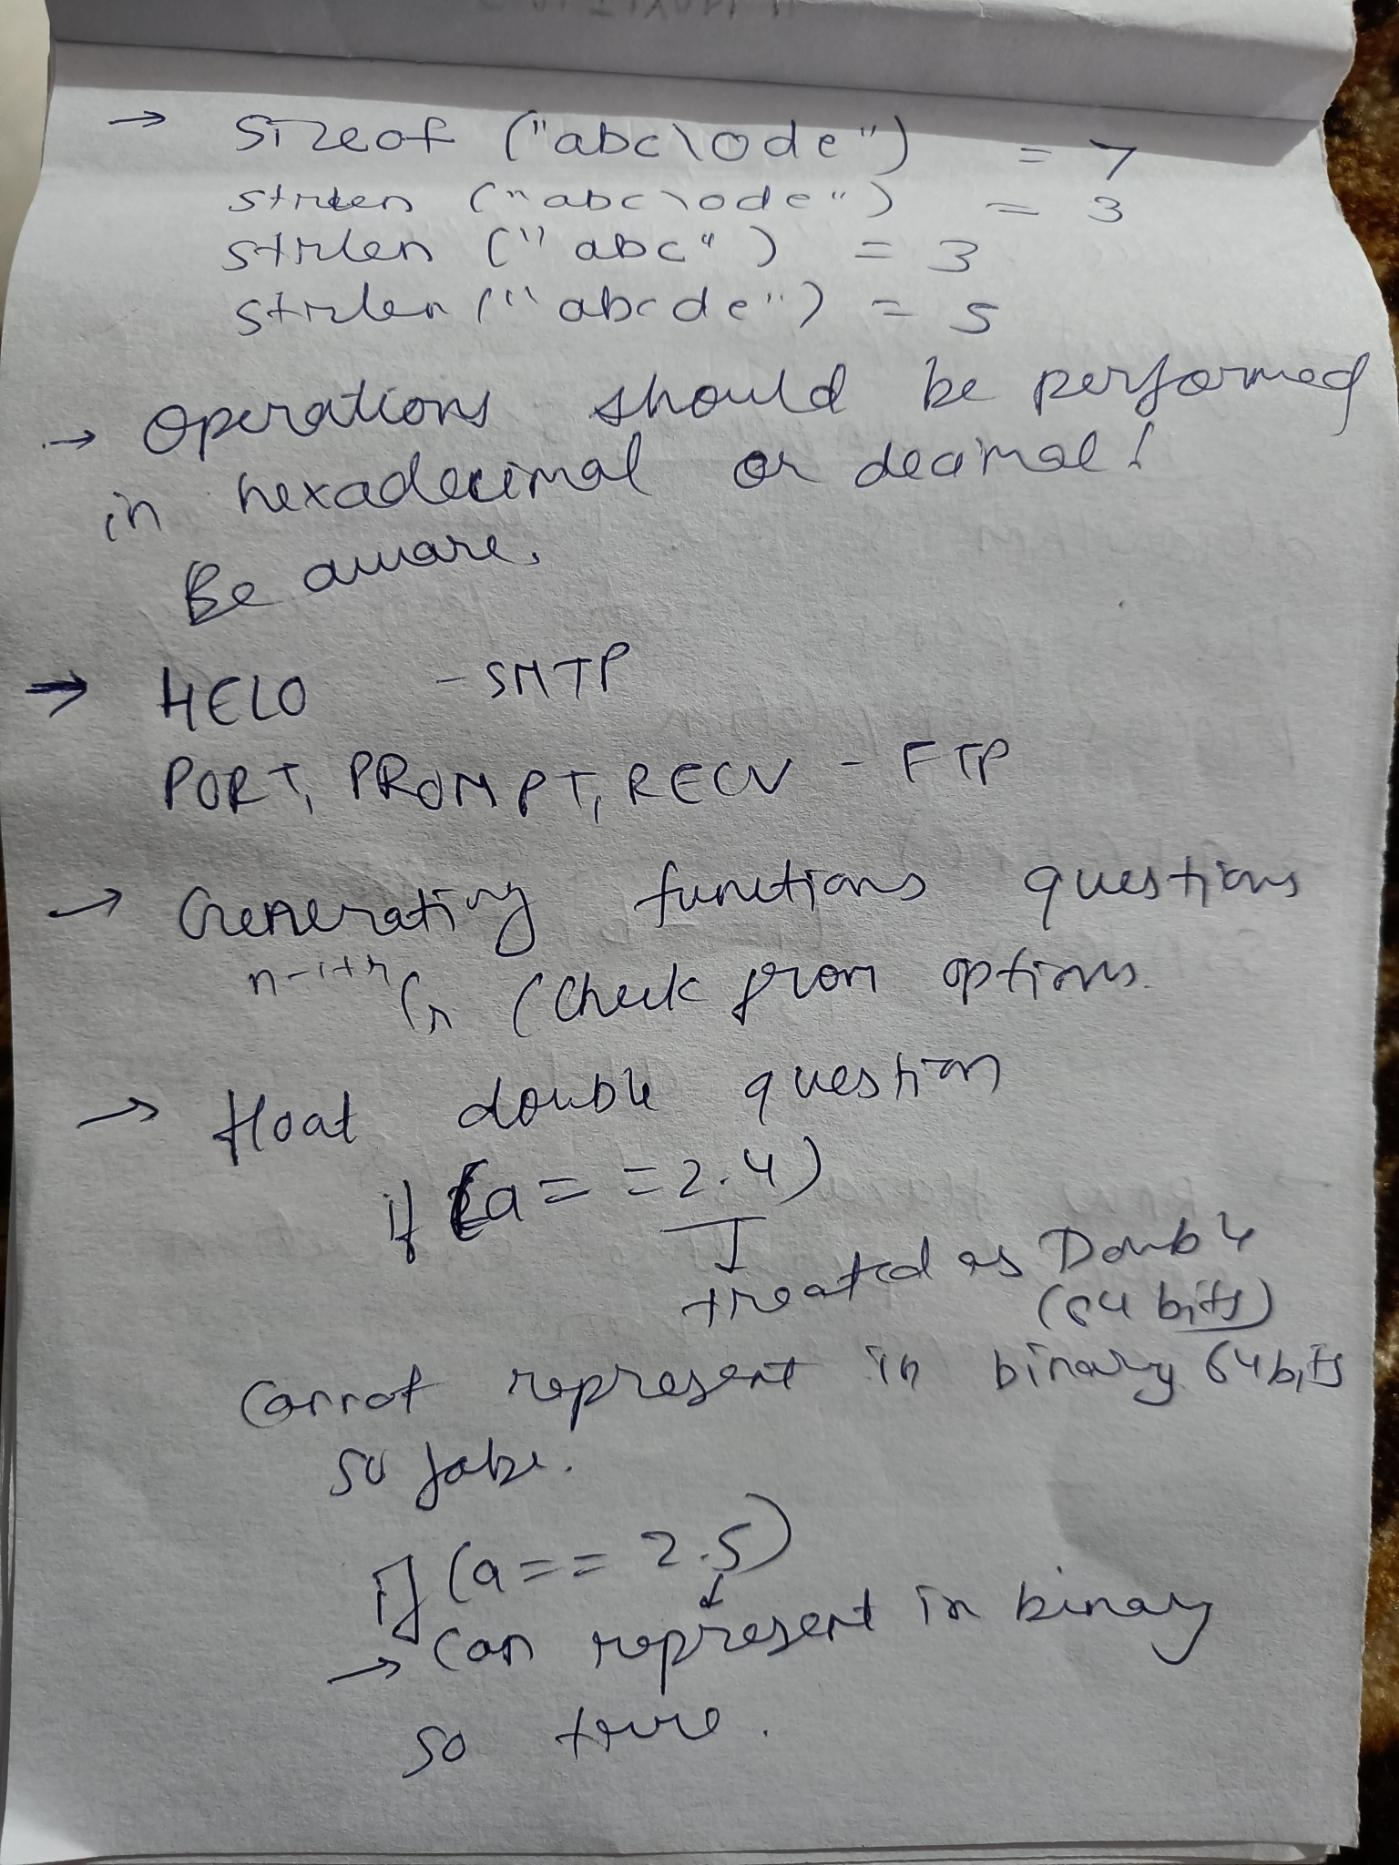 → sizeof ("abc\0de") = 7
strlen ("abc\0de") = 3
strlen ("abc") = 3
strlen ("abcde") = 5
→ Operations should be performed
in hexadecimal or decimal!
Be aware.
→ HELO - SMTP
PORT, PROMPT, RECV - FTP
→ Generating functions questions
n-1+r Cr (Check from options.
→ float double question
if (a==2.4)
treated as Double
(64 bits)
Cannot represent in binary 64bits
so false.
if (a==2.5)
→ Can represent in binary
so true.